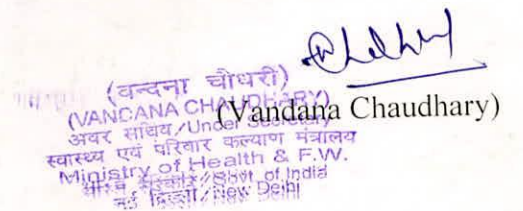 (वन्दना चौधरी)
(VANDANA CHAUDHARY)
(Vandana Chaudhary)
अवर सचिव/Under Secretary
स्वास्थ्य एवं परिवार कल्याण मंत्रालय
Ministry of Health & F.W.
भारत सरकार/Govt. of India
नई दिल्ली/New Delhi